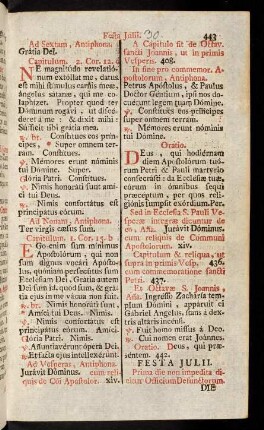 Festa Junii. 30. 443
Ad Sextam, Antiphona.
Gratia Dei.
Capitulum. 2. Cor. 12. b
NE magnitudo revelatió-
num extóllat me, datus
est mihi stímulus carnis meæ,
ángelus sátanæ, qui me co-
laphizet. Propter quod ter
Dóminum rogávi, ut discé-
deret a me: & dixit mihi:
Súfficit tibi grátia mea.
℟. br. Constítues eos prín-
cipes, * Super omnem ter-
ram. Constítues.
℣. Mémores erunt nóminis
tui Dómine. Super.
Glória Patri. Constítues.
℣. Nimis honoráti sunt amí-
ci tui Deus.
℟. Nimis confortátus est
principátus eórum.
Ad Nonam, Antiphona.
Ter virgis cæsus sum.
Capitulum. 1. Cor. 15. b
EGo enim sum mínimus
Apostolórum, qui non
sum dignus vocári Apósto-
lus, quóniam persecútus sum
Ecclésiam Dei. Grátia autem
Dei sum id, quod sum, & grá-
tia ejus in me vácua non fuit.
℟. br. Nimis honoráti sunt,
* Amíci tui Deus. Nimis.
℣. Nimis confortátus est
principátus eórum. Amíci.
Glória Patri. Nimis.
℣. Annuntiavérunt ópera Dei.
℟. Et facta ejus intellexérunt.
Ad Vesperas, Antiphona.
Jurávit Dóminus. cum reli-
quis de Cõi Apostolor. xiv
A Capitulo fit de Octav.
sancti Joannis, ut in primis
Vesperis. 408.
In fine pro commemor. A-
postolorum, Antiphona.
Petrus Apóstolus, & Paulus
Doctor Géntium, ipsi nos do-
cuérunt legem tuam Dómine.
℣. Constítues eos príncipes
super omnem terram.
℟. Mémores erunt nóminis
tui Dómine.
Oratio.
DEus, qui hodiérnam
diem Apostolórum tuó-
rum Petri & Pauli martyrio
consecrásti: da Ecclésiæ tuæ,
eórum in ómnibus sequi
præcéptum, per quos reli-
giónis sumpsit exórdium. Per.
Sed in Ecclesia S. Pauli Ve-
speræ integræ dicuntur de
eo, Aña. Jurávit Dóminus.
cum reliquis de Communi
Apostolorum. xiv
Capitulum & reliqua, ut
supra in primis Vesp. 436.
cum commemoratione sancti
Petri. 437.
Et Octavæ S. Joannis,
Aña. Ingrésso Zacharía tem-
plum Dómini, appáruit ei
Gábriel Angelus, stans a dex-
tris altáris incénsi.
℣. Fuit homo missus a Deo.
℟. Cui nomen erat Joánnes.
Oratio. Deus, qui præ-
séntem. 442.
FESTA JULII.
Prima die non impedita di-
citur Officium Defunctorum.
DIE